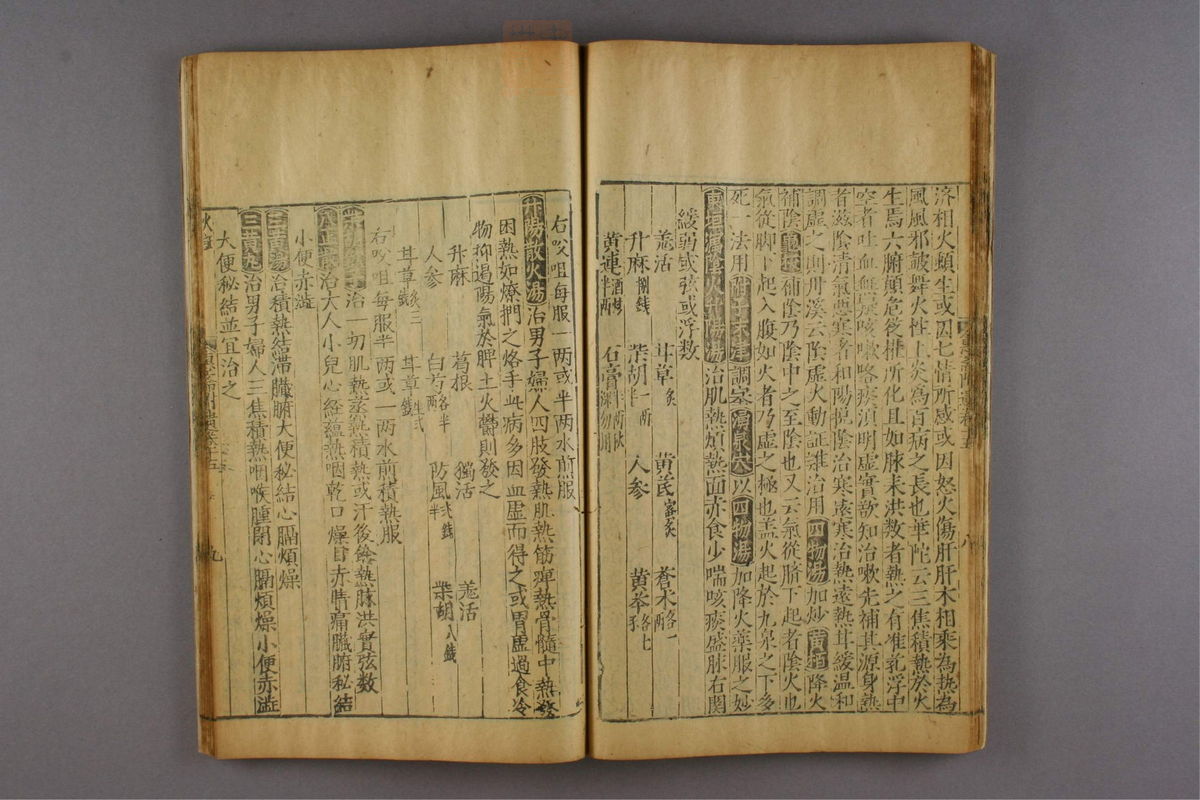 濟相火頻生或因七情所感或因怒火傷肝肝木相乘為熱為
風風邪鼓舞火性上炎為百病之長也華陀云三焦積熱於火
生焉六腑顛危後推所化且如脉来洪数者熱之有准乳浮中
空者吐血無寐咳嗽咯痰須明虛實欲知治嗽先補其源身熱
者滋陰清氣惡寒者和陽抱陰治寒遠寒治熱遠熱耳緩温和
調虛之則丹溪云陰虛火動証難治用四物湯加炒黄栢降火
補陰龜板補陰乃陰中之至陰也又云氣從臍下起者陰火也
氣從脚下起入腹如火者乃虛之極也盖火起於九泉之下多
死一法用附子末津調塗湧泉穴以四物湯加降火藥服之妙
東垣瀉陰火升陽湯治肌熱煩熱面赤食少喘咳痰盛脉右関
緩弱或弦或浮数
羌活 甘草炙 黄芪蜜炙 蒼术各一兩
升麻捌錢 柴胡一兩 人参 黄芩各七
黄連半兩酒 石膏
右㕮咀每服一两或半两水煎服
升陽散火湯治男子婦人四肢發熱肌熱筋痺熱骨髓中熱發
困熱如燎捫之烙手此病多因血虛而得之或胃虛過食冷
物抑遏陽氣於脾土火欝則發之
升麻 葛根 獨活 羌活
人参 白芍各半兩 防風 柴胡八錢
甘草 甘草
右㕮咀每服半两或一两水煎積熱服
治一切肌熱蒸熱積熱或汗後餘熱脉洪實弦数
八正散治大人小兒心経蘊熱咽乾口燥目赤睛痛臟腑秘結
小便赤澁
三黄湯治積熱結滯臟腑大便秘結心膈煩燥
三黄丸治男子婦人三焦積熱咽喉腫閉心膈煩燥小便赤澁
大便秘結並宜治之
火症
九